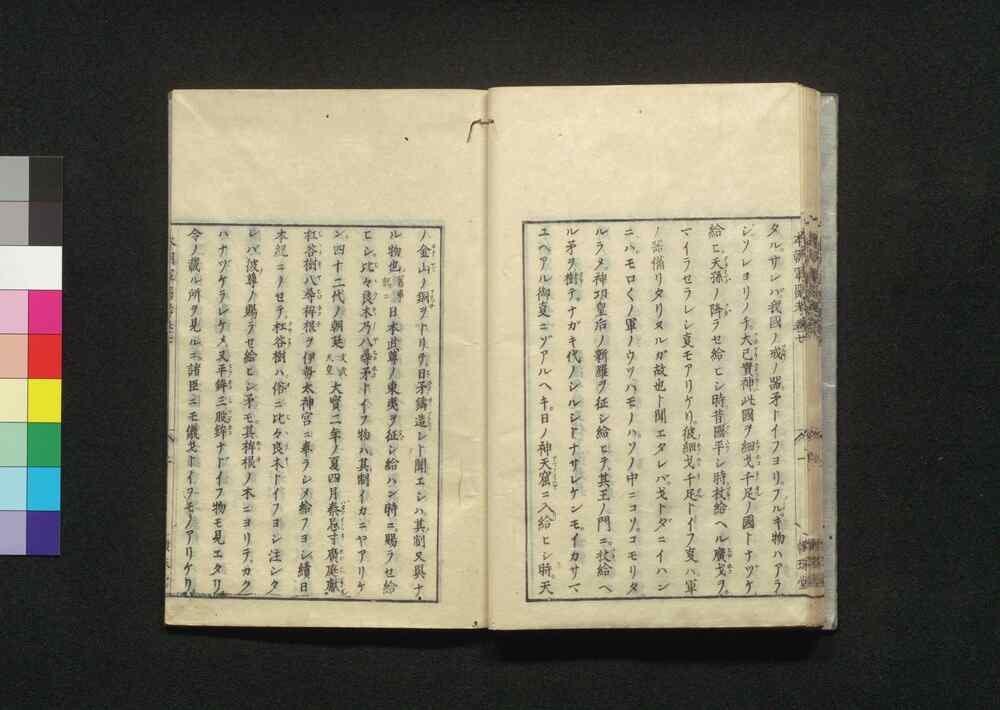 タル、サレバ我國ノ戒ノ器、矛トイフヨリフルキ物ハアラ
ジ、ソレヨリノチ、大己貴神此國ヲ細戈千足ノ國トナヅケ
給ヒ、天孫ノ降ラセ給ヒシ時昔國平シ時杖給ヘル廣戈ヲ
マイラセラレシ支モアリケリ、彼細戈千足トイフ支ハ軍
ノ器備リタリヌルガ故也ト聞エタレバ、戈トダニイハン
ニハ、モロくノ軍ノウツハモノハソノ中ニコソコモリタ
ルラメ、神功皇后ノ新羅ヲ征シ給ヒテ、其王ノ門ニ杖給ヘ
ル矛ヲ樹テ、ナガキ代ノシルシトナサレケンモ、イカサマ
ユヘアル御支ニゾアルヘキ、日ノ神天窟ニ入給ヒシ時、天
ノ金山ノ銅ヲトリテ、日矛鑄造シト聞エシハ、其制又異ナ
ル物也、日本武尊ノ東夷ヲ征シ給ハン時ニ賜ラセ給
ヒシ、比々良木乃八尋矛トイフ物ハ、其制イカニヤアリケ
ン、四十二代ノ朝廷文武天皇大寶二年ノ夏四月秦忌寸廣庭獻
杠谷樹八尋桙根ヲ伊勢太神宮ニ奉ラシメ給フヨシ續日
本紀ニノセテ、杠谷樹ハ俗ニ比々良木トイフヨシ注シタ
レバ、彼尊ノ賜ラセ給ヒシ矛モ其桙根ノ木ニヨリテ、カク
ハナヅケラレケメ、又平鉾三股鉾ナドイフ物モ見エタリ、
令ノ載ル所ヲ見ルニ、諸臣ニモ儀戈トイフモノアリケリ、